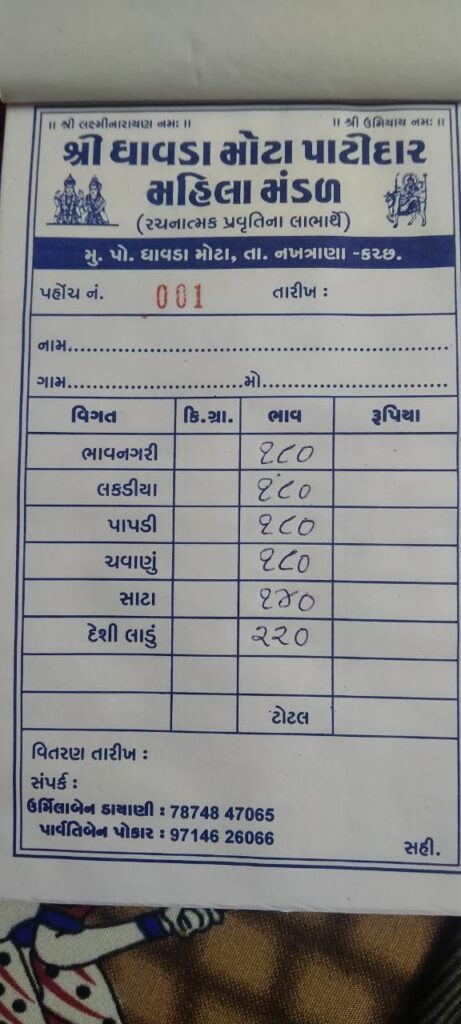 ॥ શ્રી લક્ષ્મીનારાયણ નમઃ ॥ ॥ શ્રી ઉમિયાય નમઃ ॥
શ્રી ઘાવડા મોટા પાટીદાર
મહિલા મંડળ
(રચનાત્મક પ્રવૃતિના લાભાર્થે)
મુ. પો. ઘાવડા મોટા, તા. નખત્રાણા -કચ્છ.
પહોંચ નં. 001 તારીખ :
નામ
ગામ મો
વિગત કિ.ગ્રા. ભાવ રૂપિયા
ભાવનગરી ૧૮૦
લકડીયા ૧૮૦
પાપડી ૧૮૦
ચવાણું ૧૮૦
સાટા ૧૪૦
દેશી લાડું ૨૨૦
ટોટલ
વિતરણ તારીખ :
સંપર્ક :
ઉર્મિલાબેન ડાયાણી : 78748 47065
પાર્વતિબેન પોકાર : 97146 26066
સહી.